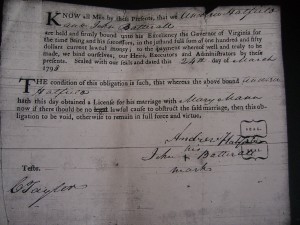 KNOW all Men by these Presents, that we Andrew Hatfield
and John Batteralt
are held and firmly bound unto his Excellency the Governor of Virginia for
the time being and his successors, in the just and full sum of one hundred and fifty
dollars current money; to the payment whereof well and truly to be
made, we bind ourselves, our Heirs, Executors and Administrators by these
presents. Sealed with our seals and dated this 24th day of March
179
THE condition of this obligation is such, that whereas the above bound Andrew
Hatfield
hath this day obtained a License for his marriage with Mary Mann
now if there should be no legal lawful cause to obstruct the said marriage, then this
obligation to be void, otherwise to remain in full force and virtue.
Andrew Hatfield
his
John + Batteralt
mark
Teste.
C Taylor